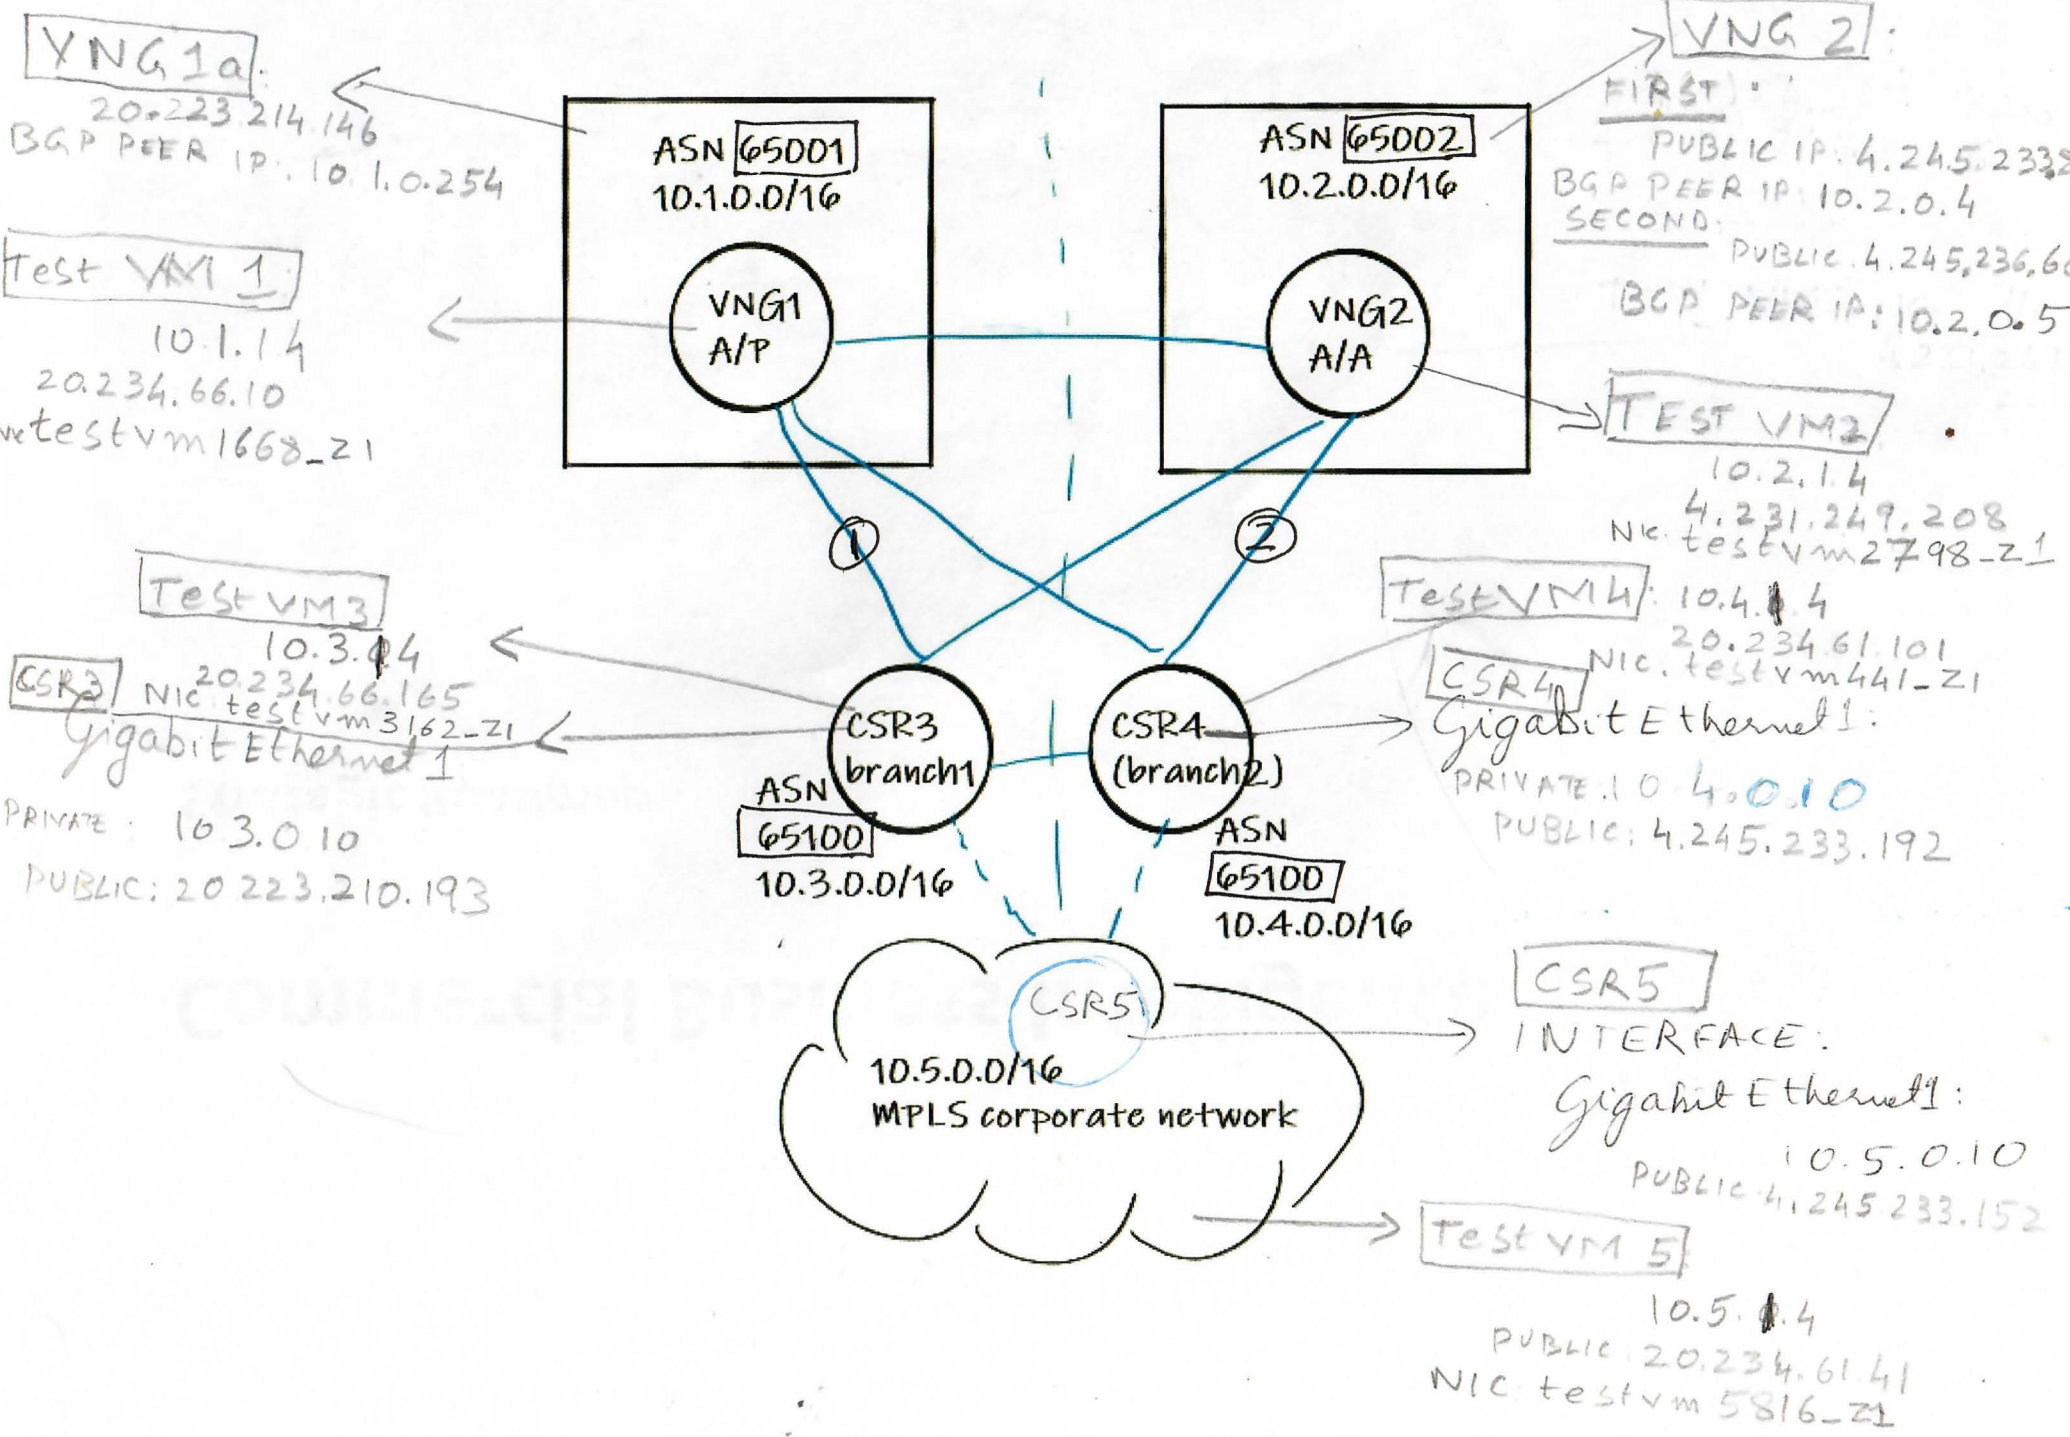 VNG1a:
20.223.214.146
BGP PEER IP: 10.1.0.254
Test VM 1
10.1.14
20.234.66.10
testvm1668_z1
ASN 65001
10.1.0.0/16
VNG1
A/P
ASN 65002
10.2.0.0/16
VNG2
A/A
VNG 2:
FIRST:
PUBLIC IP: 4.245.233.
BGP PEER IP: 10.2.0.4
SECOND:
PUBLIC. 4.245,236,6
BGP PEER IP: 10.2.0.5
TEST VM2
10.2.1.4
4.231.249.208
NIC. testvm2798_z1
1
2
Test VM3
10.3.14
20.234.66.165
CSR3
NIC. testvm3162_z1
Gigabit Ethernet 1
PRIVATE: 10.3.0 10
PUBLIC: 20 223.210.193
Test VM4: 10.4.1 4
20.234.61.101
NIC. testvm441_z1
CSR4
Gigabit Ethernet1:
PRIVATE.10 4.0.10
PUBLIC: 4.245.233.192
CSR3
branch1
ASN
65100
10.3.0.0/16
CSR4
(branch2)
ASN
65100
10.4.0.0/16
CSR5
10.5.0.0/16
MPLS corporate network
CSR5
INTERFACE:
Gigabit Ethernet1:
10.5.0.10
PUBLIC 4.245 233.152
Test VM 5
10.5.1.4
PUBLIC. 20.234.61.41
NIC. testvm 5816_z1